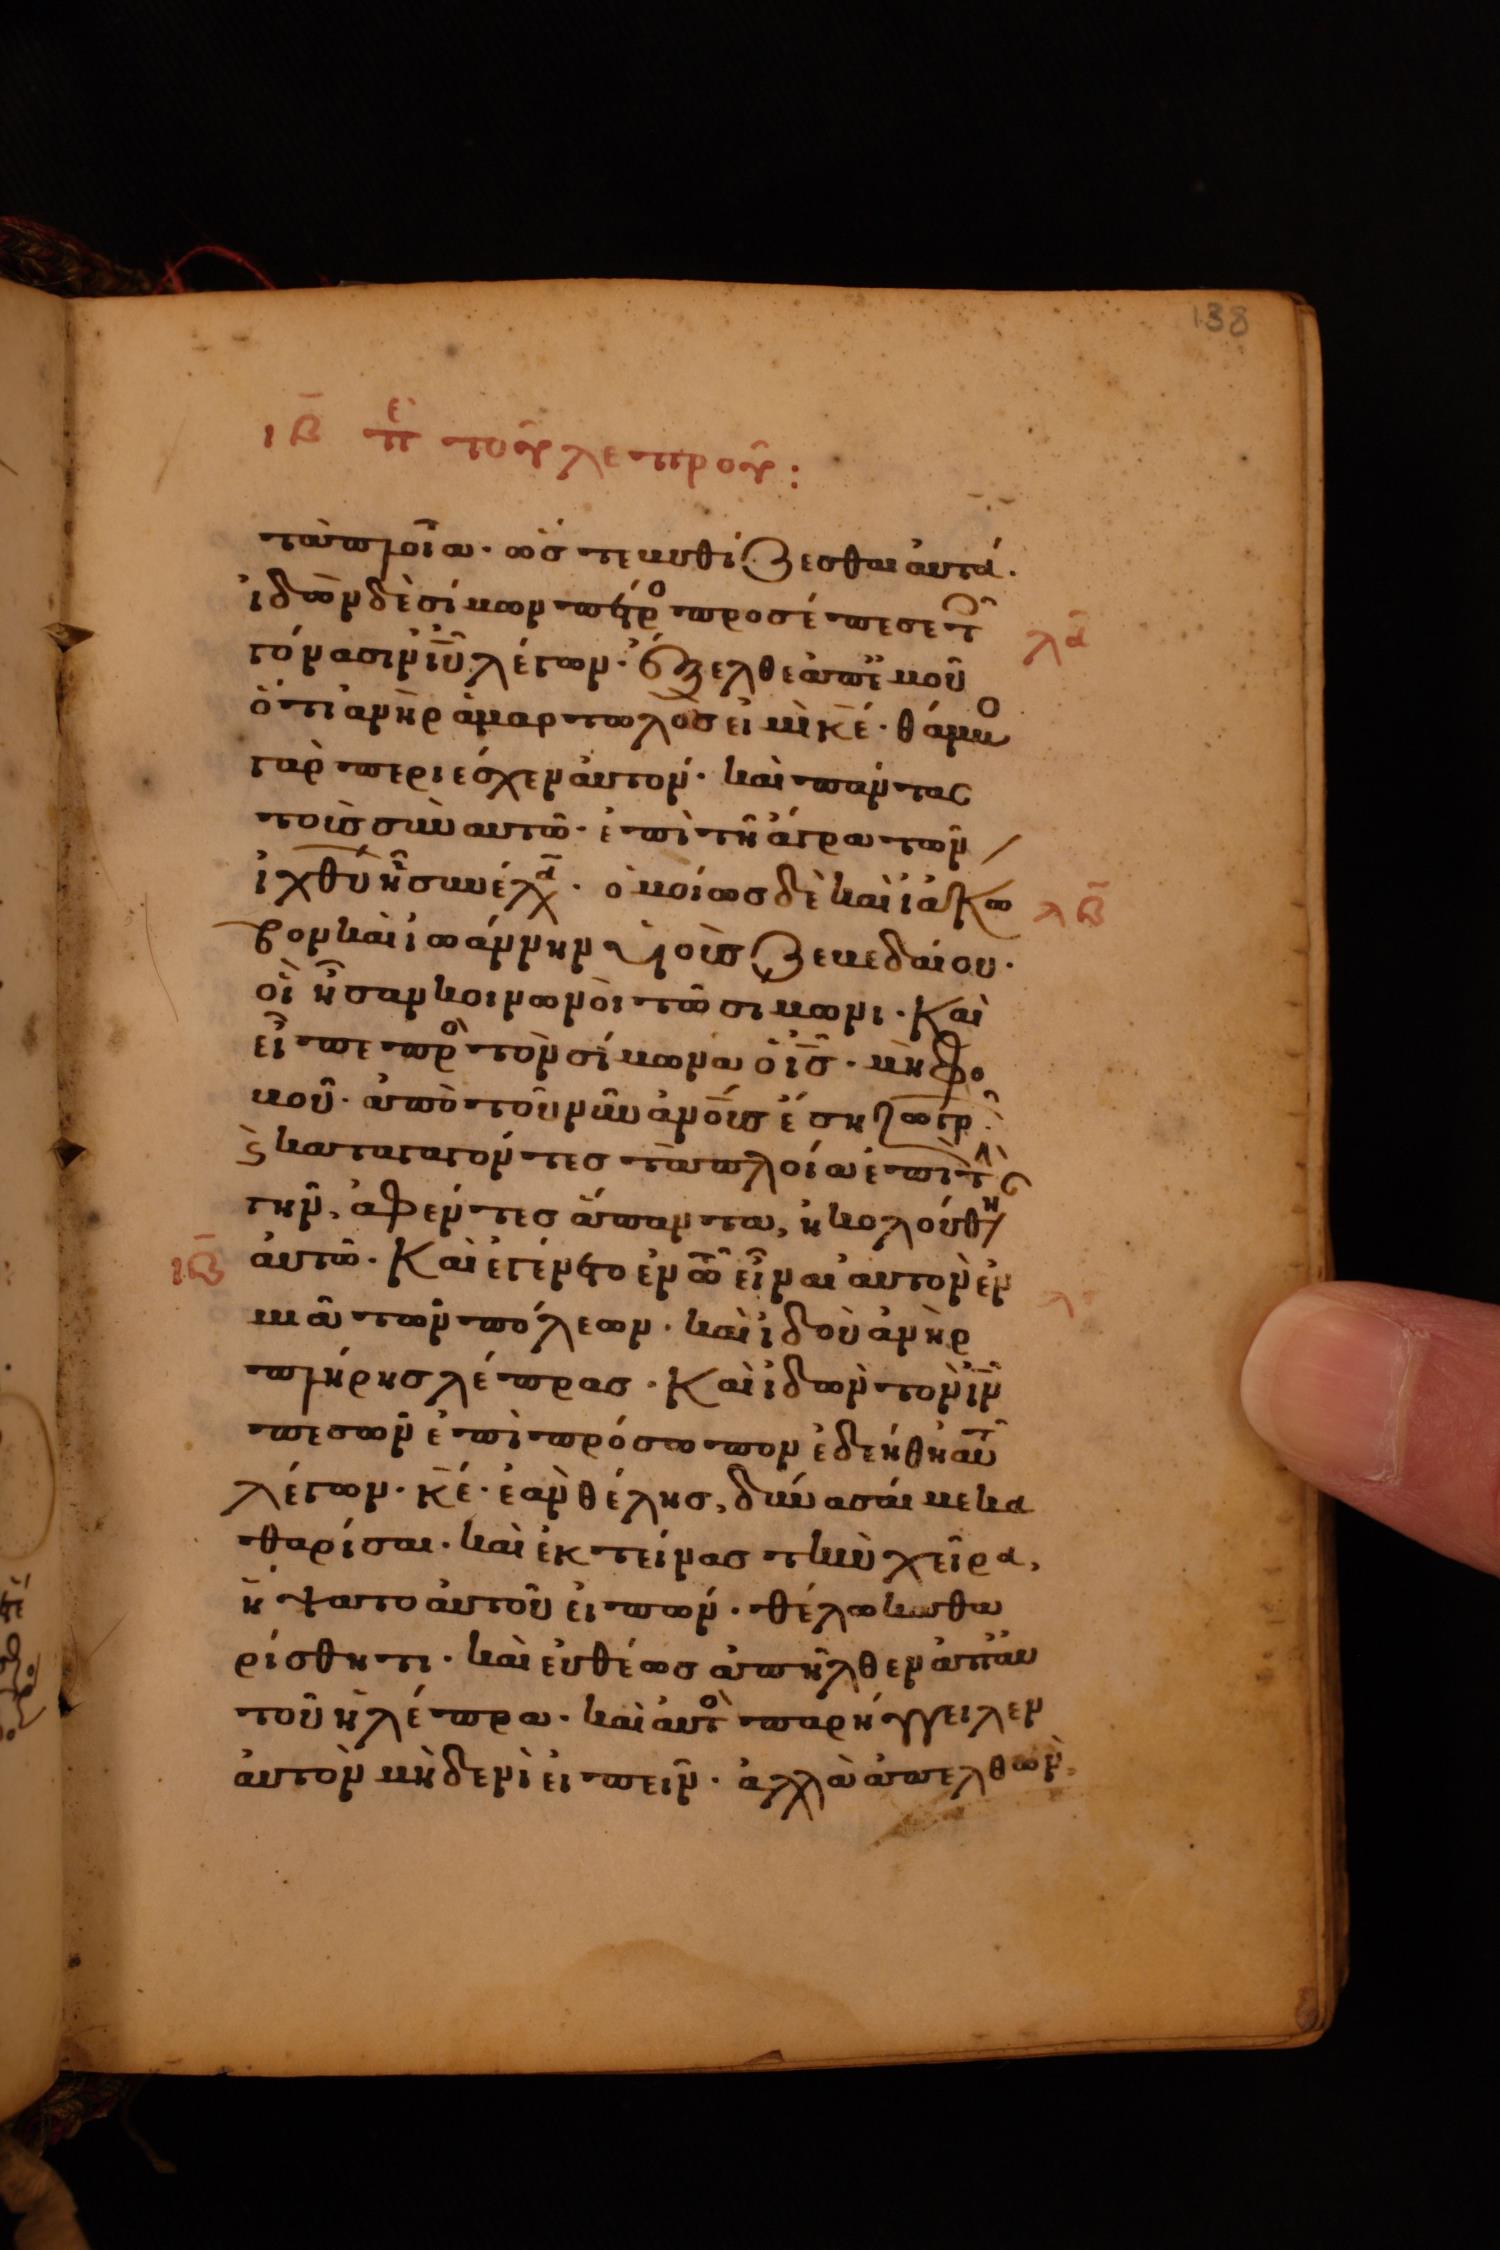 138
ιβ πε τοῦ λεπροῦ:
τὰ πλοῖα· ὡς τε βυθίζεσθαι αὐτά.
ἰδὼν δὲ σίμων πέτρο προσέπεσε τ
γόνασιν ἰῡ λέγων· ἔξελθε ἀπ' ἐμοῦ
λα
ὅτι ἀνὴρ ἁμαρτωλός εἰμὶ κε̄· θάμβο
γὰρ περιέσχεν αὐτόν· καὶ πάντας
τοὺς σὺν αὐτῶ· ἐπὶ τῆ ἄγρα τῶν
ἰχθύ ἧ συνέλα· ὁμοίως δὲ καὶ ἰάκω
λβ
βον καὶ ἰωάννην υἱοὺς ζεβεδαίου·
οἳ ἦσαν κοινωνοὶ τῶ σίμωνι· Καὶ
εἶπε πρὸ τὸν σίμωνα ὁ ἰς̄· μὴ φο
βοῦ· ἀπὸ τοῦ νῦν ἀνους ἔση ζωγρ
ς καταγαγόντες τὰ πλοῖα ἐπὶ τ
γῆν, ἀφέντες ἅπαντα, ἠκολούθη
ιβ
αὐτῶ· Καὶ ἐγένετο ἐν τῶ εἶναι αὐτὸν ἐν
μιᾶ τῶν πόλεων· καὶ ἰδοὺ ἀνὴρ
πλήρης λέπρας· Καὶ ἰδὼν τὸν ἰν̄
πεσὼν ἐπὶ πρόσωπον ἐδεήθη αὐτ
λέγων· κε̄· ἐὰν θέλης, δύνασαί με κα
θαρίσαι· καὶ ἐκτείνας τὴν χεῖρα,
ἥψατο αὐτοῦ εἰπών· θέλω καθα
ρίσθητι· καὶ εὐθέως ἀπῆλθεν ἀπ' αυ
τοῦ ἡ λέπρα· καὶ αὐτὸ παρήγγειλεν
αὐτὸν μὴδενὶ εἰπεῖν· ἀλλὰ ἀπελθὼν,